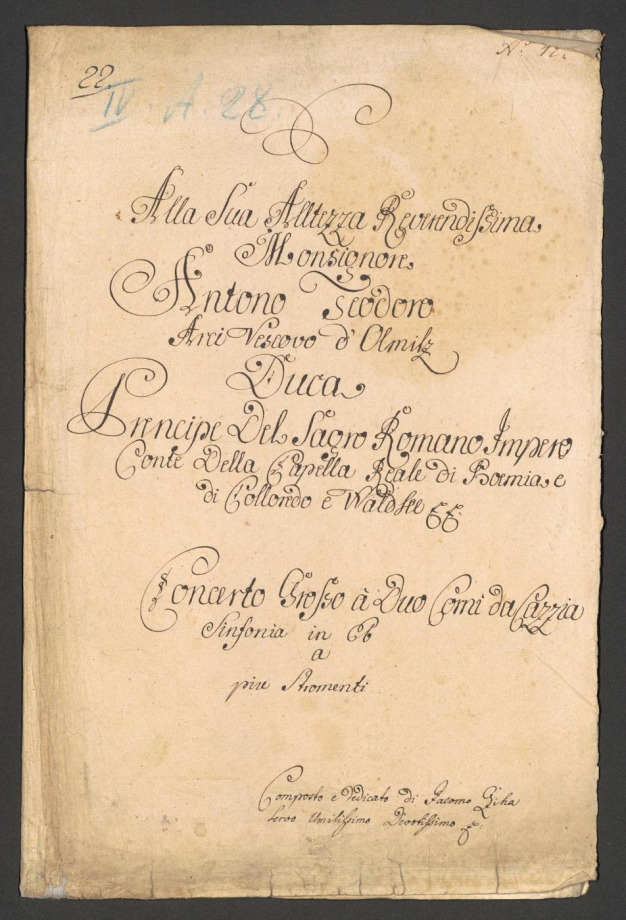 22
Nº 12.
IV. A. 28.
Alla Sua Alltezza Reverendissima
Monsignore
Antono Teodoro
Arci Vescovo d'Olmitz
Duca
Prencipe Del Sagro Romano Impero
Conte Della Capella Reale di Boemia e
di Colloredo e Waldsee
Concerto Grosso à Duo Corni da Cazzia
Sinfonia in
a
piu Stromenti
Composto e Dedicato di Jacomo
Servo Umilissimo Divotissimo